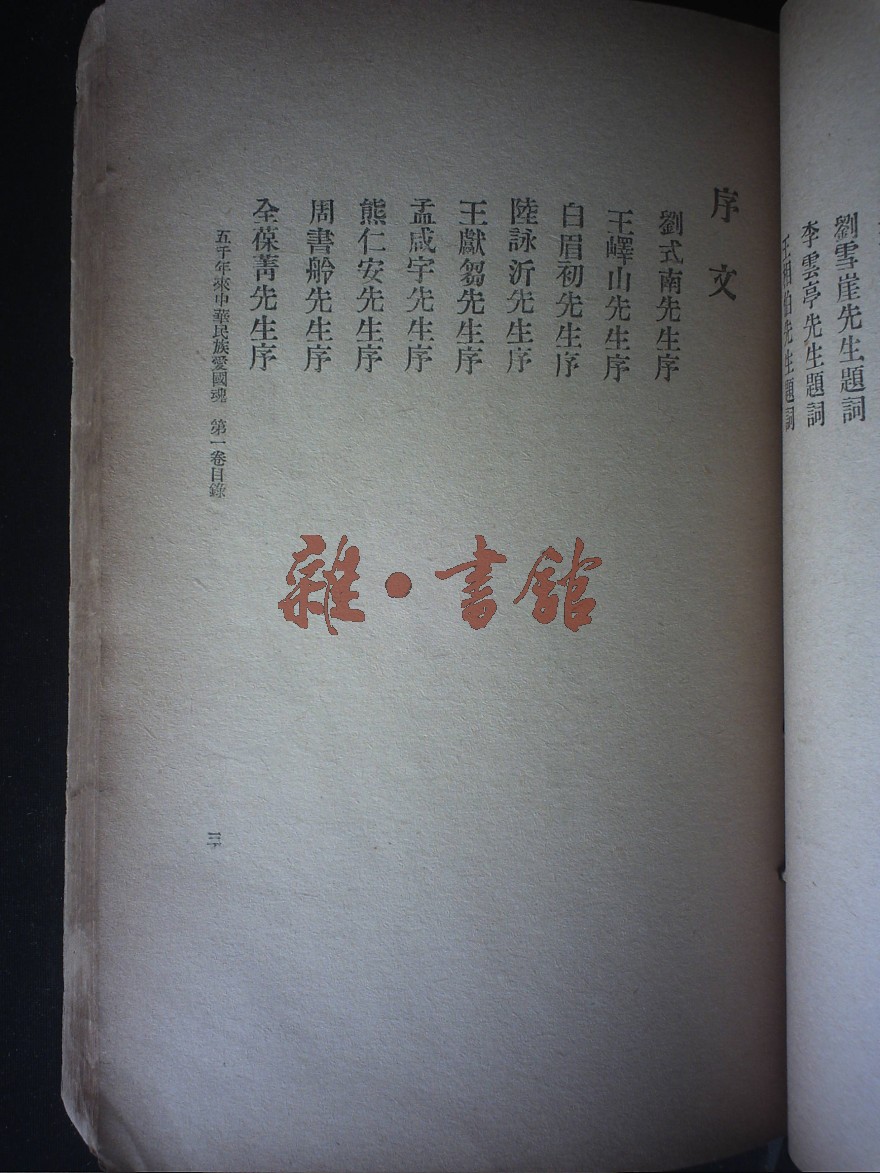 劉雪崖先生題詞
李雲亭先生題詞
王相伯先生題詞
序文
劉式南先生序
王嶧山先生序
白眉初先生序
陸詠沂先生序
王獻芻先生序
孟咸宇先生序
熊仁安先生序
周書舲先生序
全葆菁先生序
五千年來中華民族愛國魂 第一卷目錄
三
雜·書館